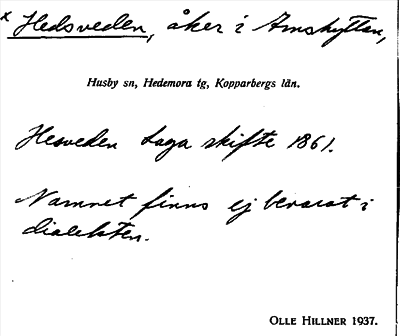 x Hedsveden, åker i Amshyttan,
Husby sn, Hedemora tg, Kopparbergs län.
Hesveden Laga skifte 1861.
Namnet finns ej bevarat i
dialekten.
OLLE HILLNER 1937.